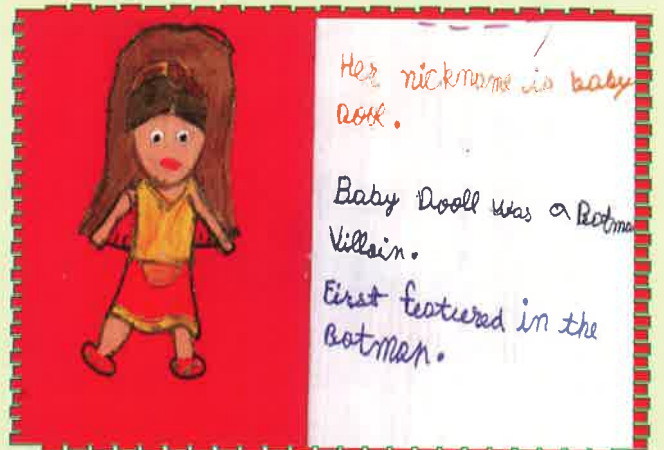 Her nickname is baby
Dooll.
Baby Dooll was a Botman
Villain.
First featured in the
Botman.